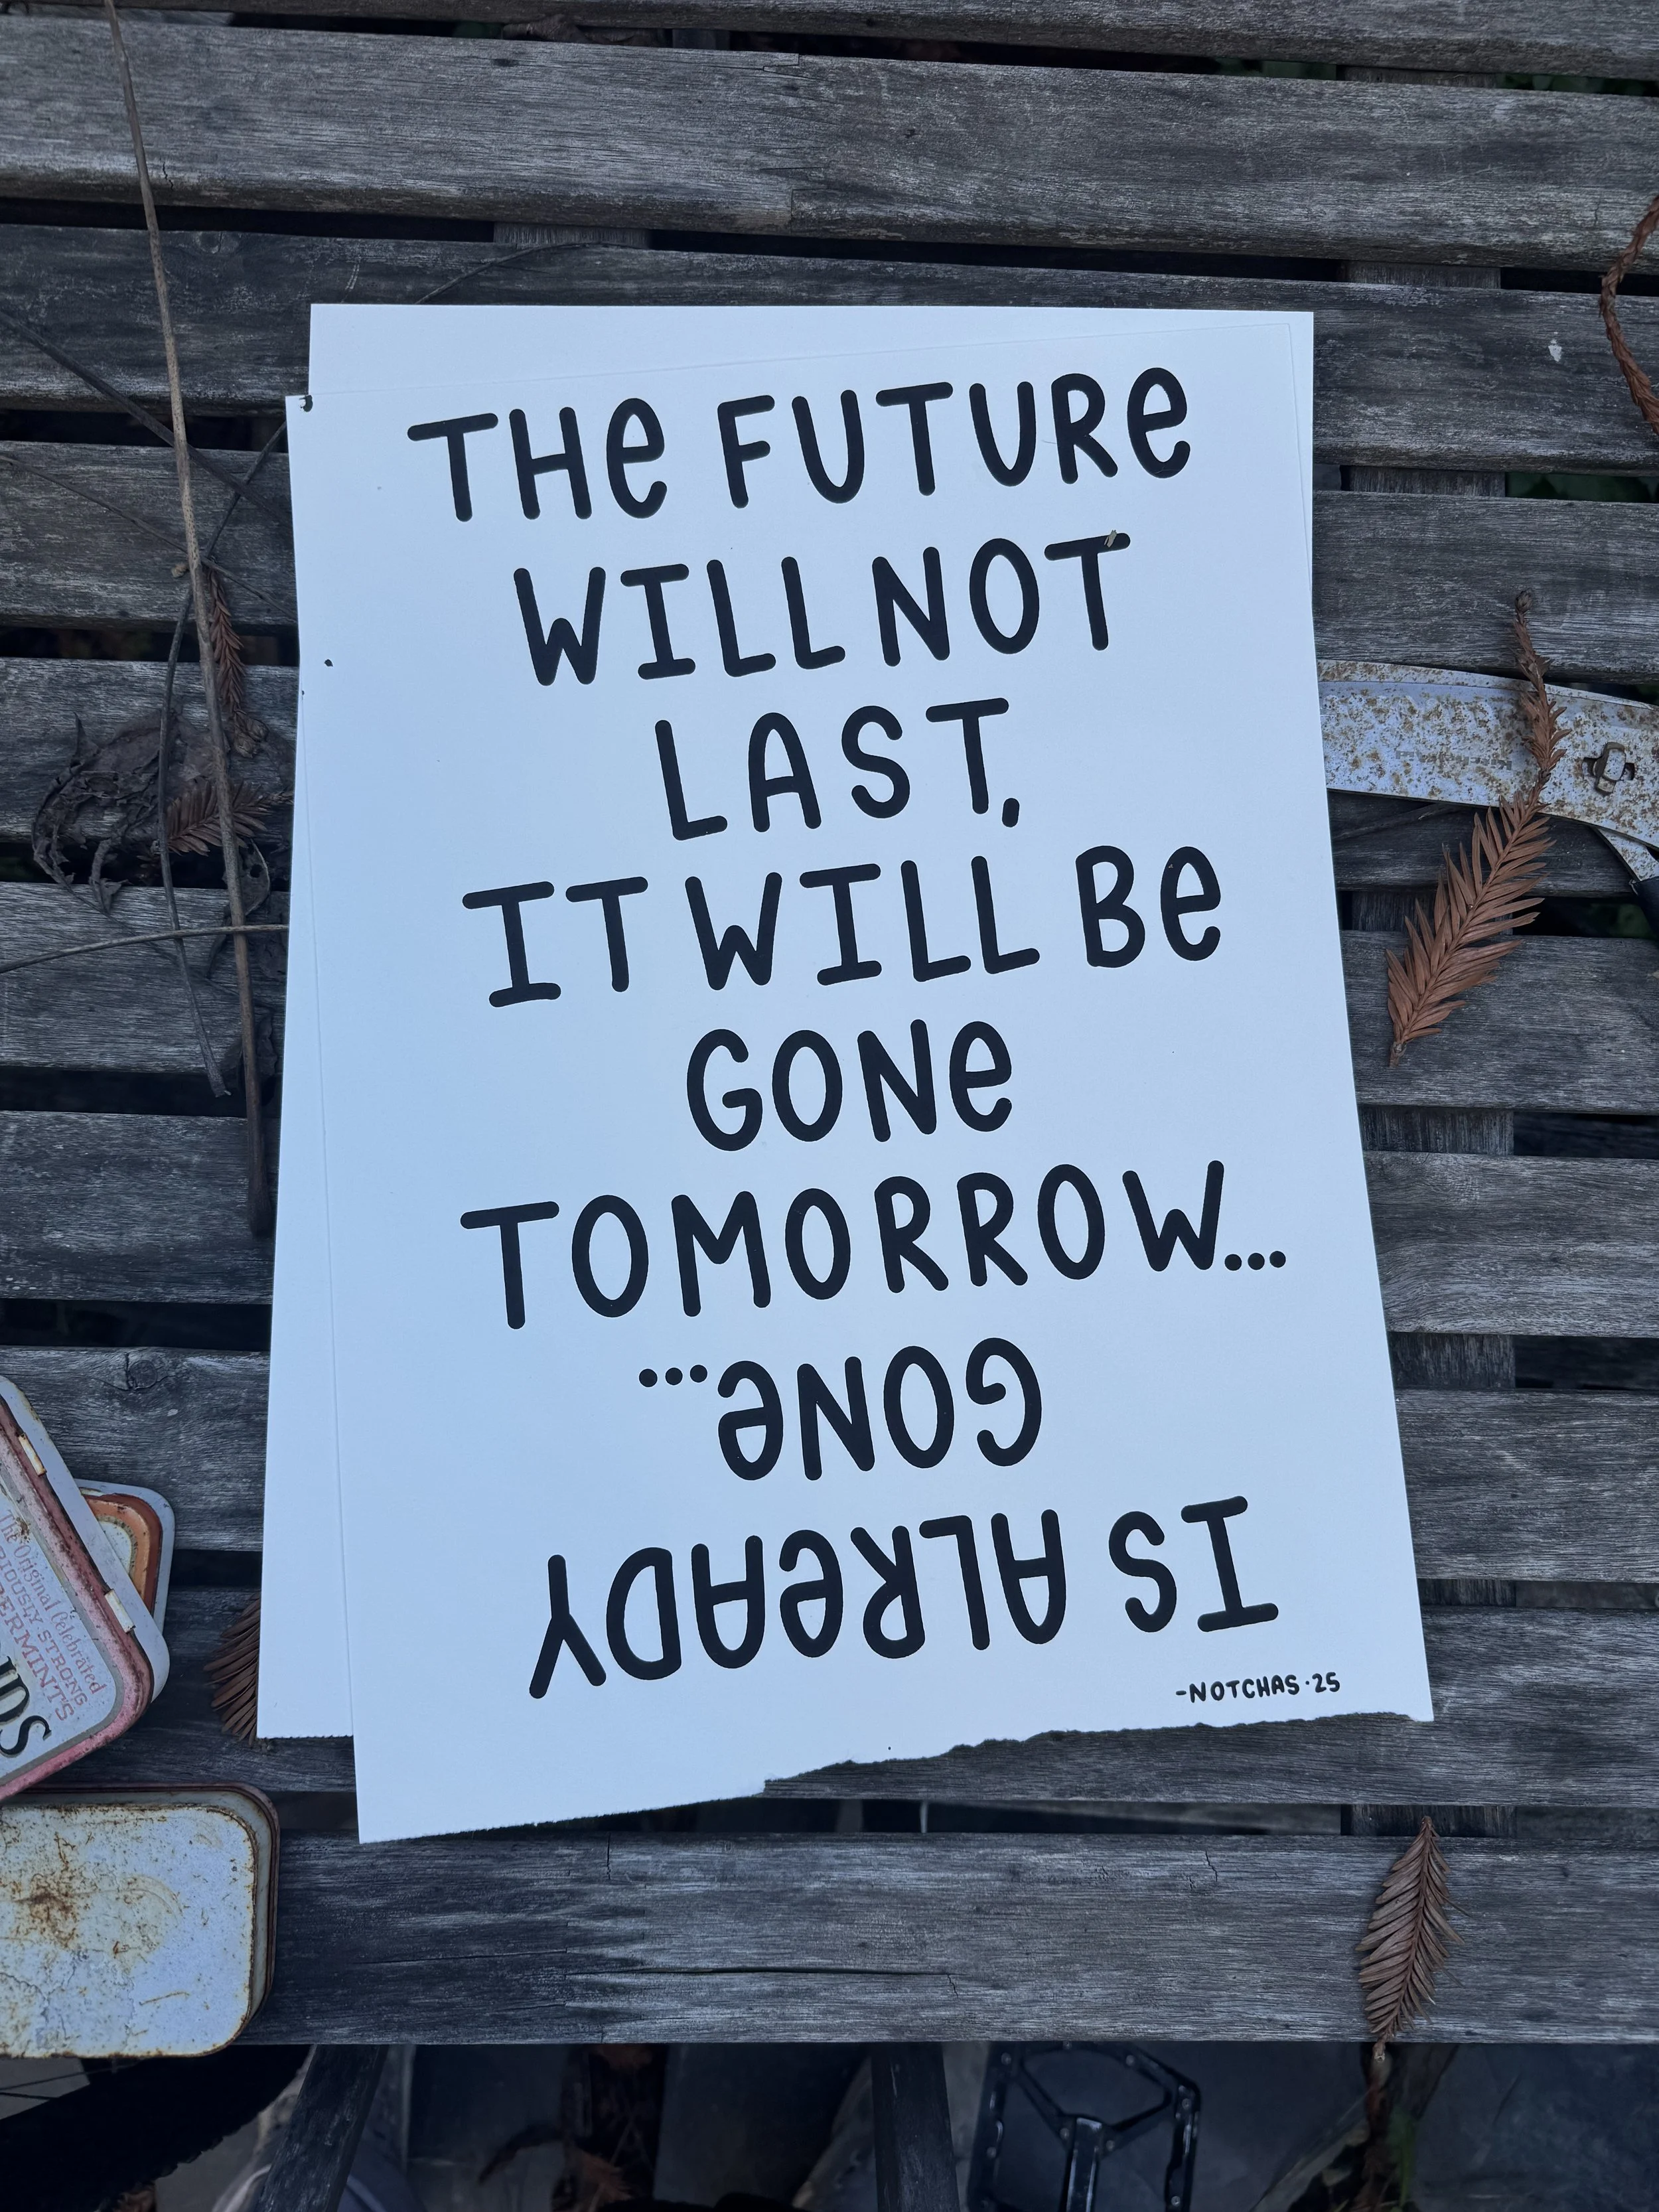 THe FUTURe
WILL NOT
LAST,
IT WILL Be
GONe
TOMORROW...
IS ALReADY
GONe...
-NOTCHAS·25
The Original Celebrated